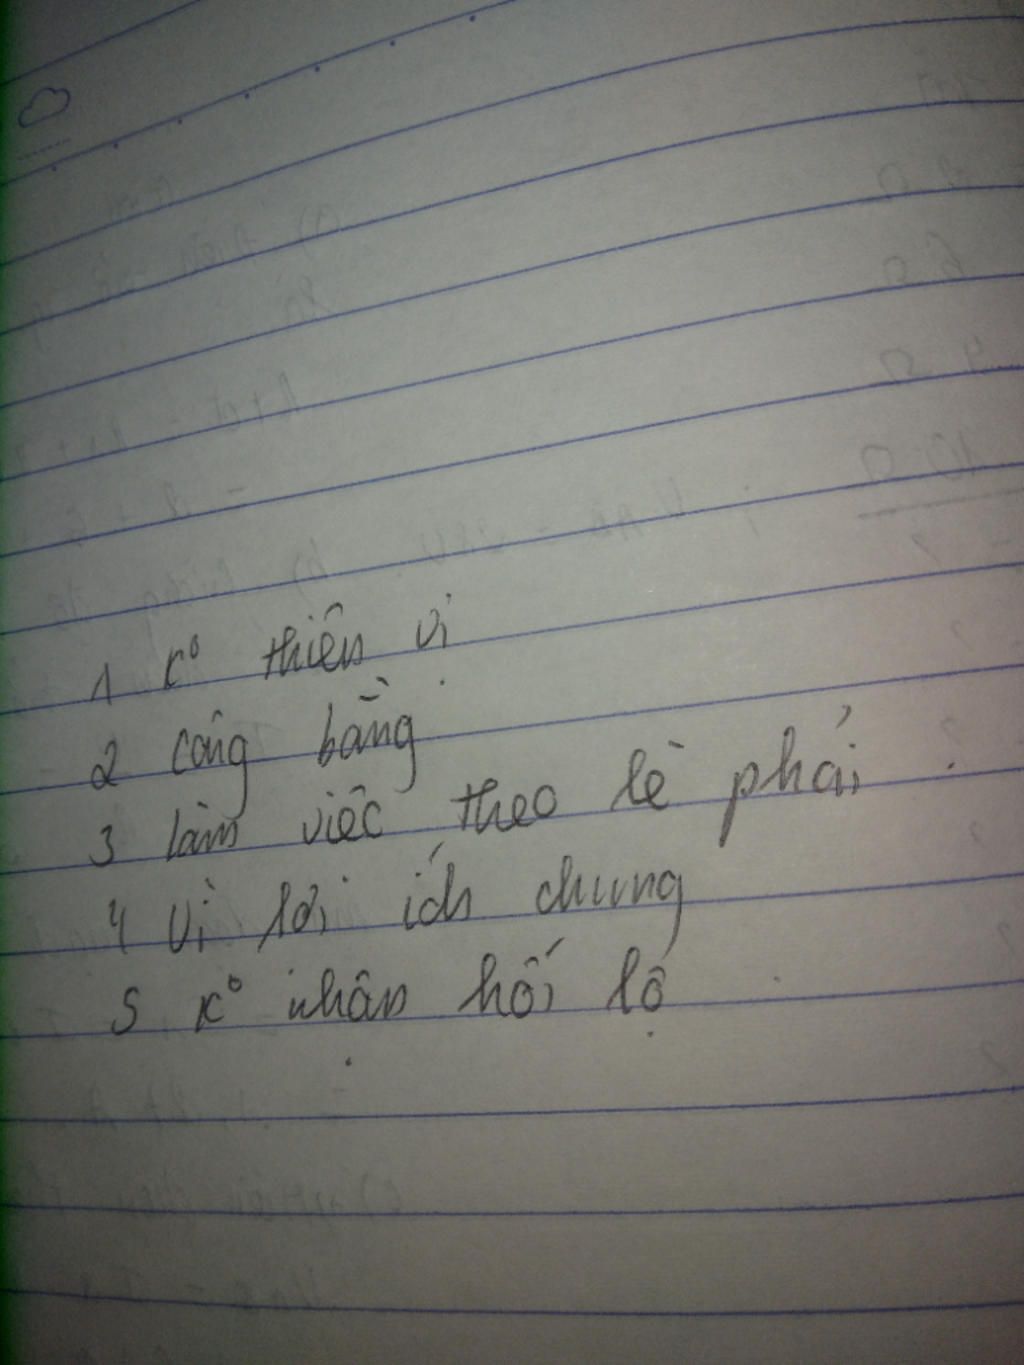 1 K° thiên vị
2 công bằng
3 làm việc theo lẽ phải
4 Vì lợi ích chung
5 K° nhận hối lộ